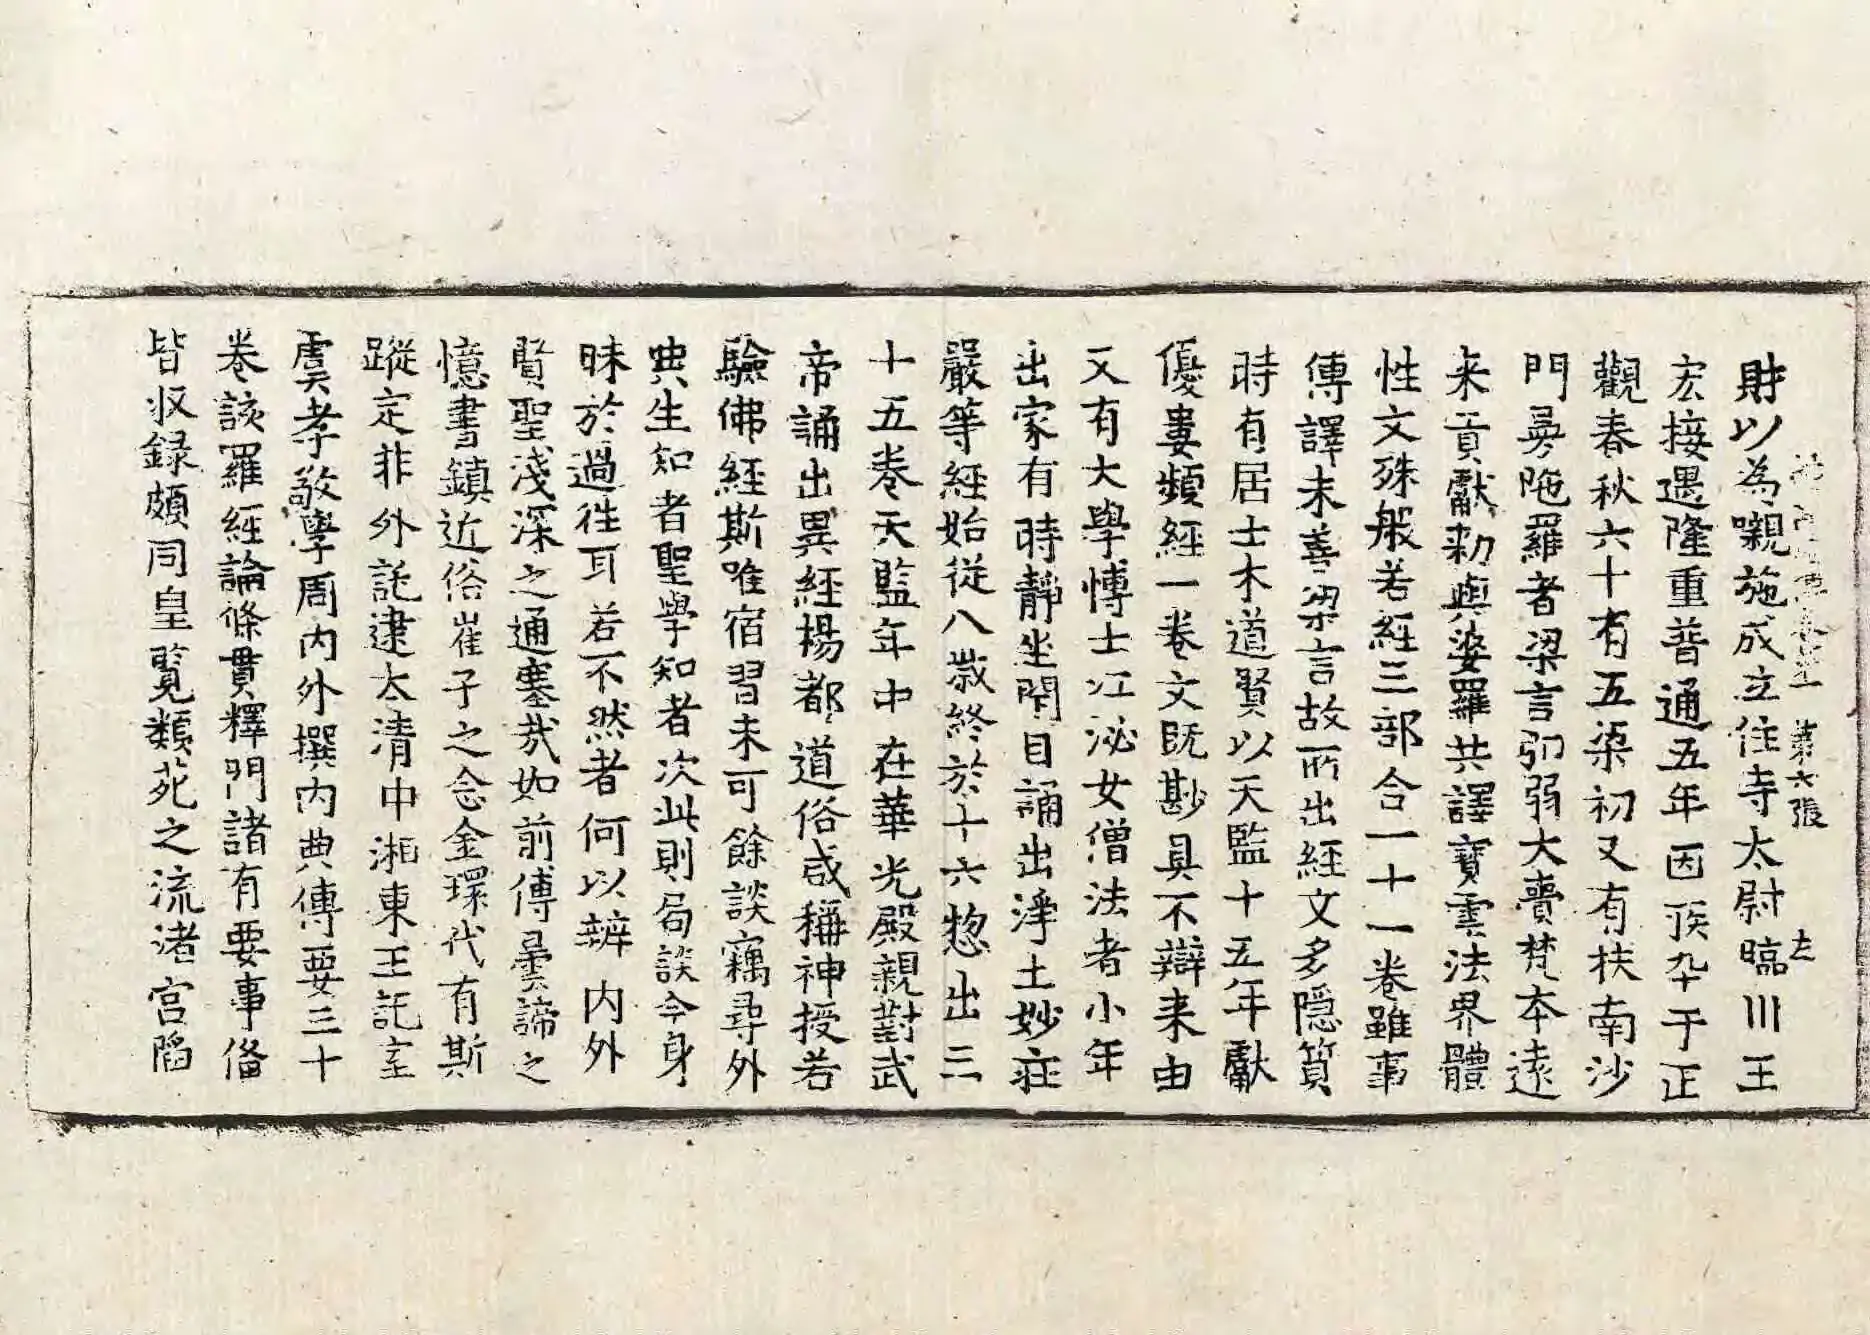 第六張 左
財以為嚫施成立住寺太尉臨川王
宏接遇隆重普通五年因疾卒于正
觀春秋六十有五梁初又有扶南沙
門㬅陁羅者梁言弘弱大賷梵本遠
来貢獻勑與婆羅共譯寶雲法界體
性文殊般若經三部合一十一卷雖事
傳譯未善梁言故所出經文多隱質
時有居士木道賢以天監十五年獻
優婁頻經一卷文既尠具不辯来由
又有大學博士江泌女僧法者小年
出家有時靜坐閇目誦出淨土妙莊
嚴等經始從八歲終於十六惣出三
十五卷天監年中在華光殿親對武
帝誦出異經楊都道俗咸稱神授若
驗佛經斯唯宿習未可餘談竊尋外
典生知者聖學知者次此則局談今身
昧於過往耳若不然者何以辨內外
賢聖淺深之通塞㢤如前傳曇諦之
憶書鎮近俗崔子之念金環代有斯
蹤定非外託逮太清中湘東王記室
虞孝敬學周內外撰內典傳要三十
卷該羅經論條貫釋門諸有要事俻
皆收録頗同皇覽類苑之流渚宮陷